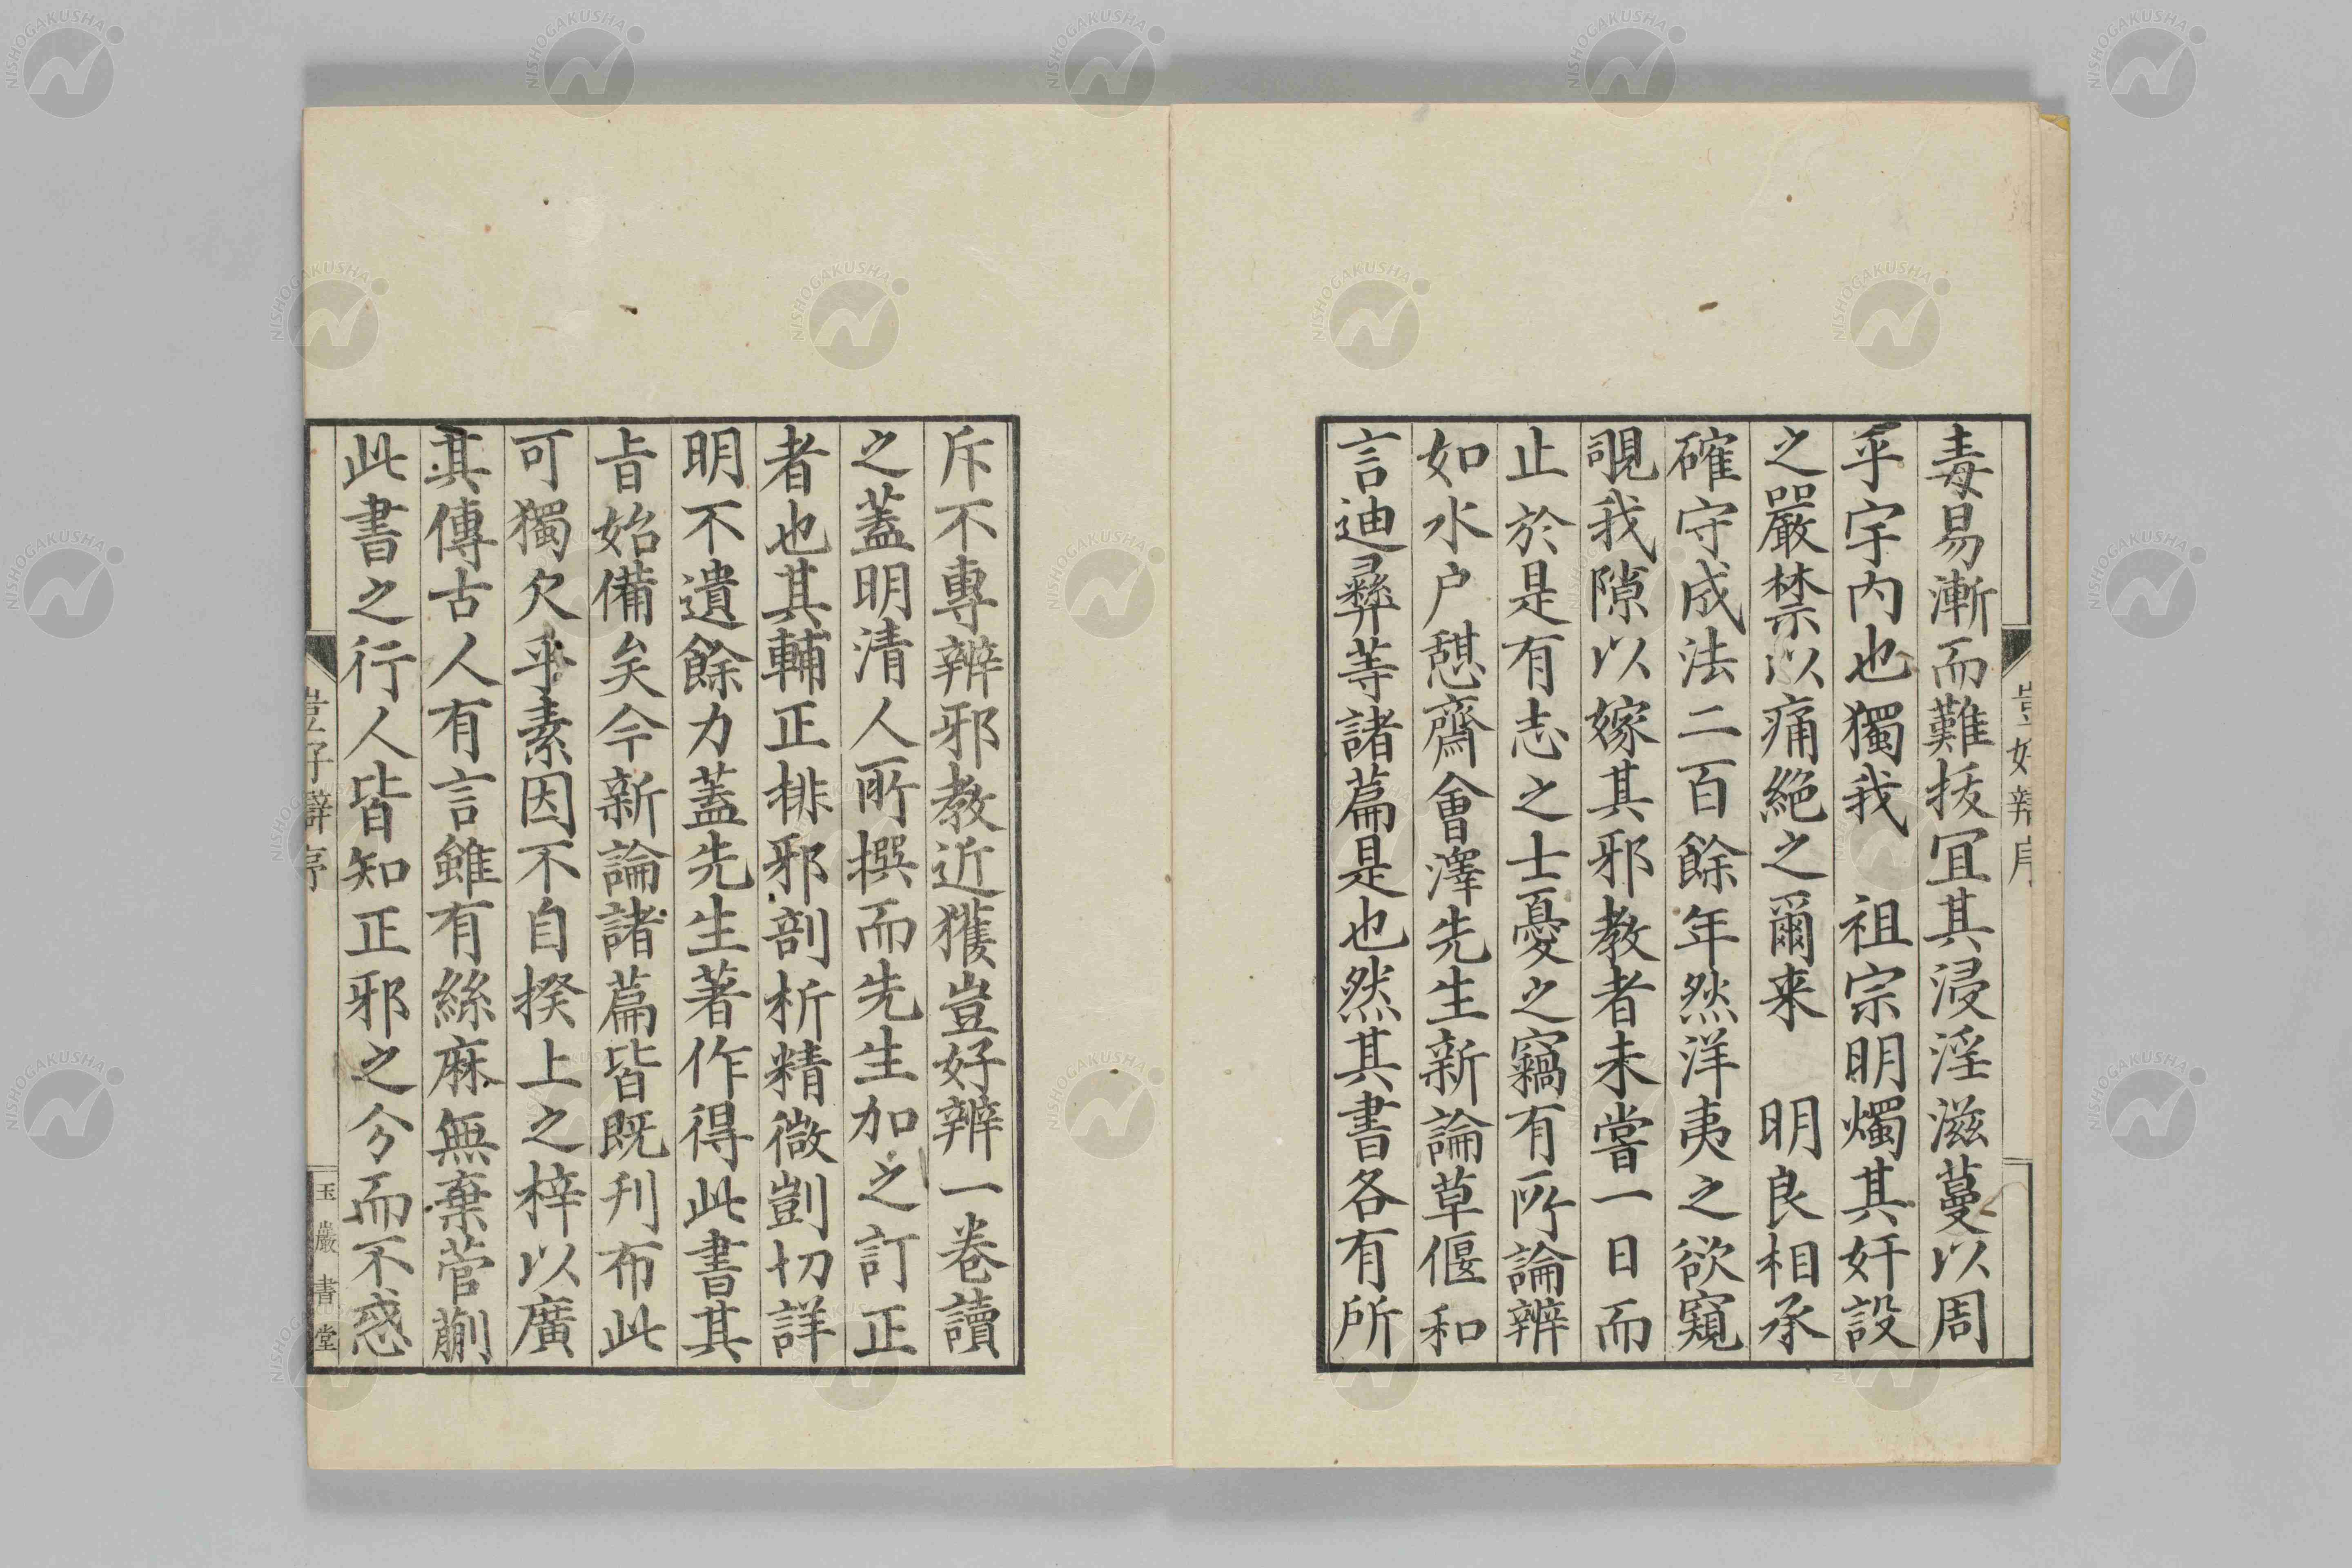 毒易漸而難拔宜其浸淫滋蔓以周
乎宇内也獨我　祖宗明燭其奸設
之嚴禁以痛絕之爾来　明良相承
確守成法二百餘年然洋夷之欲窺
覗我隙以嫁其邪教者未嘗一日而
止於是有志之士憂之竊有所論辨
如水户憇齋會澤先生新論草偃和
言迪彞等諸篇是也然其書各有所
斥不專辨邪教近獲豈好辨一卷讀
之蓋明清人所撰而先生加之訂正
者也其輔正排邪剖析精微剴切詳
明不遺餘力蓋先生著作得此書其
旨始備矣今新論諸篇皆既刋布此
可獨欠乎素因不自揆上之梓以廣
其傳古人有言雖有絲麻無棄菅蒯
此書之行人皆知正邪之分而不惑
豈好辨序
豈好辨序
玉巖書堂
NISHOGAKUSHA